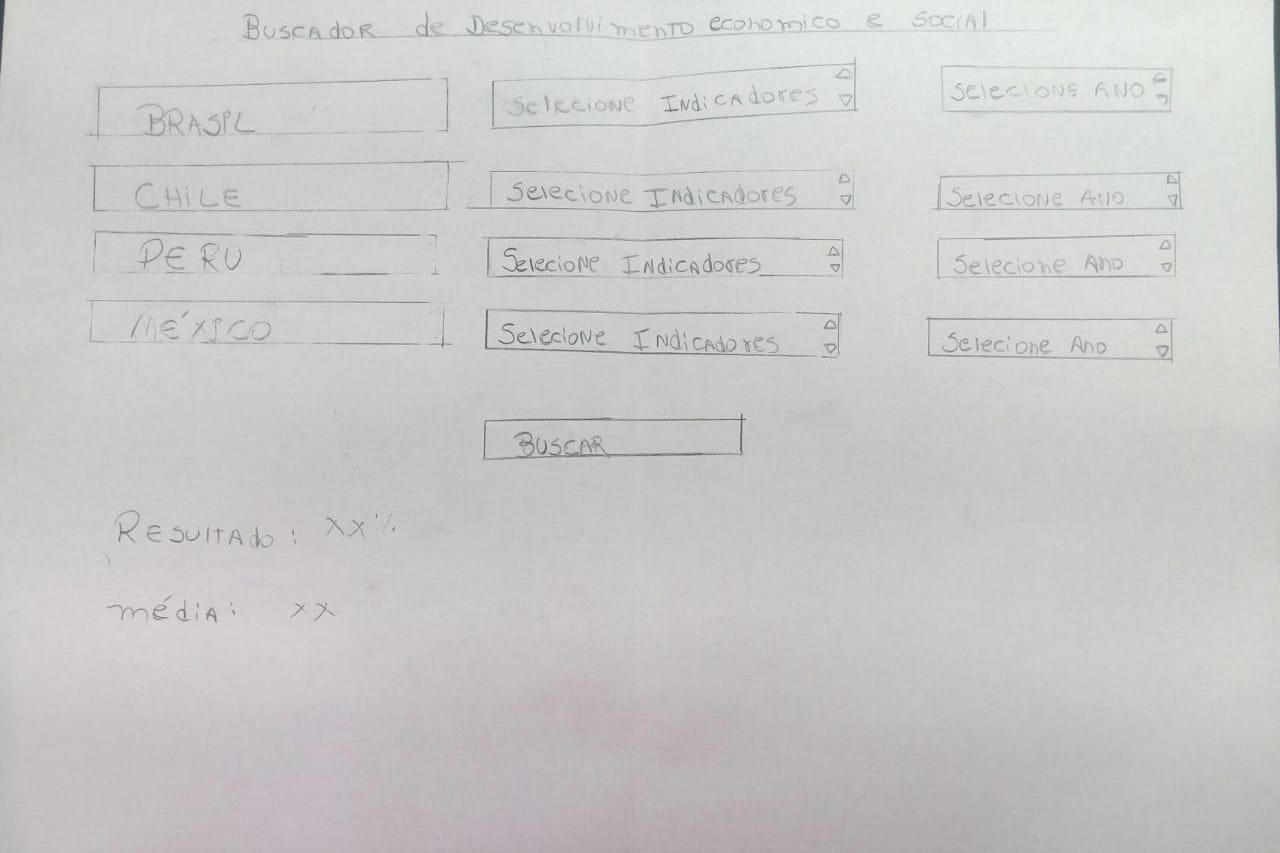 Buscador de Desenvolvimento economico e social
BRASIL Selecione Indicadores Selecione Ano
CHILE Selecione Indicadores Selecione Ano
PERU Selecione Indicadores Selecione Ano
MÉXICO Selecione Indicadores Selecione Ano
BUSCAR
Resultado: XX%
média: XX